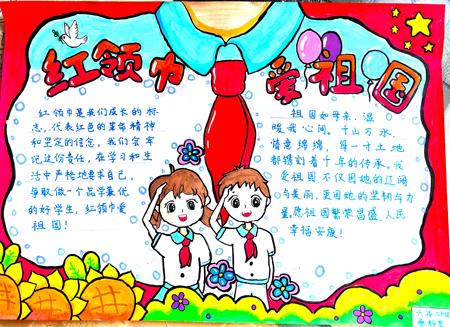 红领巾 爱祖国
红领巾是我们成长的标
志,代表红色的革命精神
和坚定的信念,我们会牢
记这份责任,在学习和生
活中严格地要求自己,
争取做一个品学兼优
的好学生,红领巾爱
祖国!
祖国如母亲,温
暖我心间。千山万水,
情意绵绵,每一寸土地
都镌刻着千年的传承。我
爱祖国不仅因她的辽阔
与美丽,更因她的坚韧与力
量。愿祖国繁荣昌盛,人民
幸福安康!